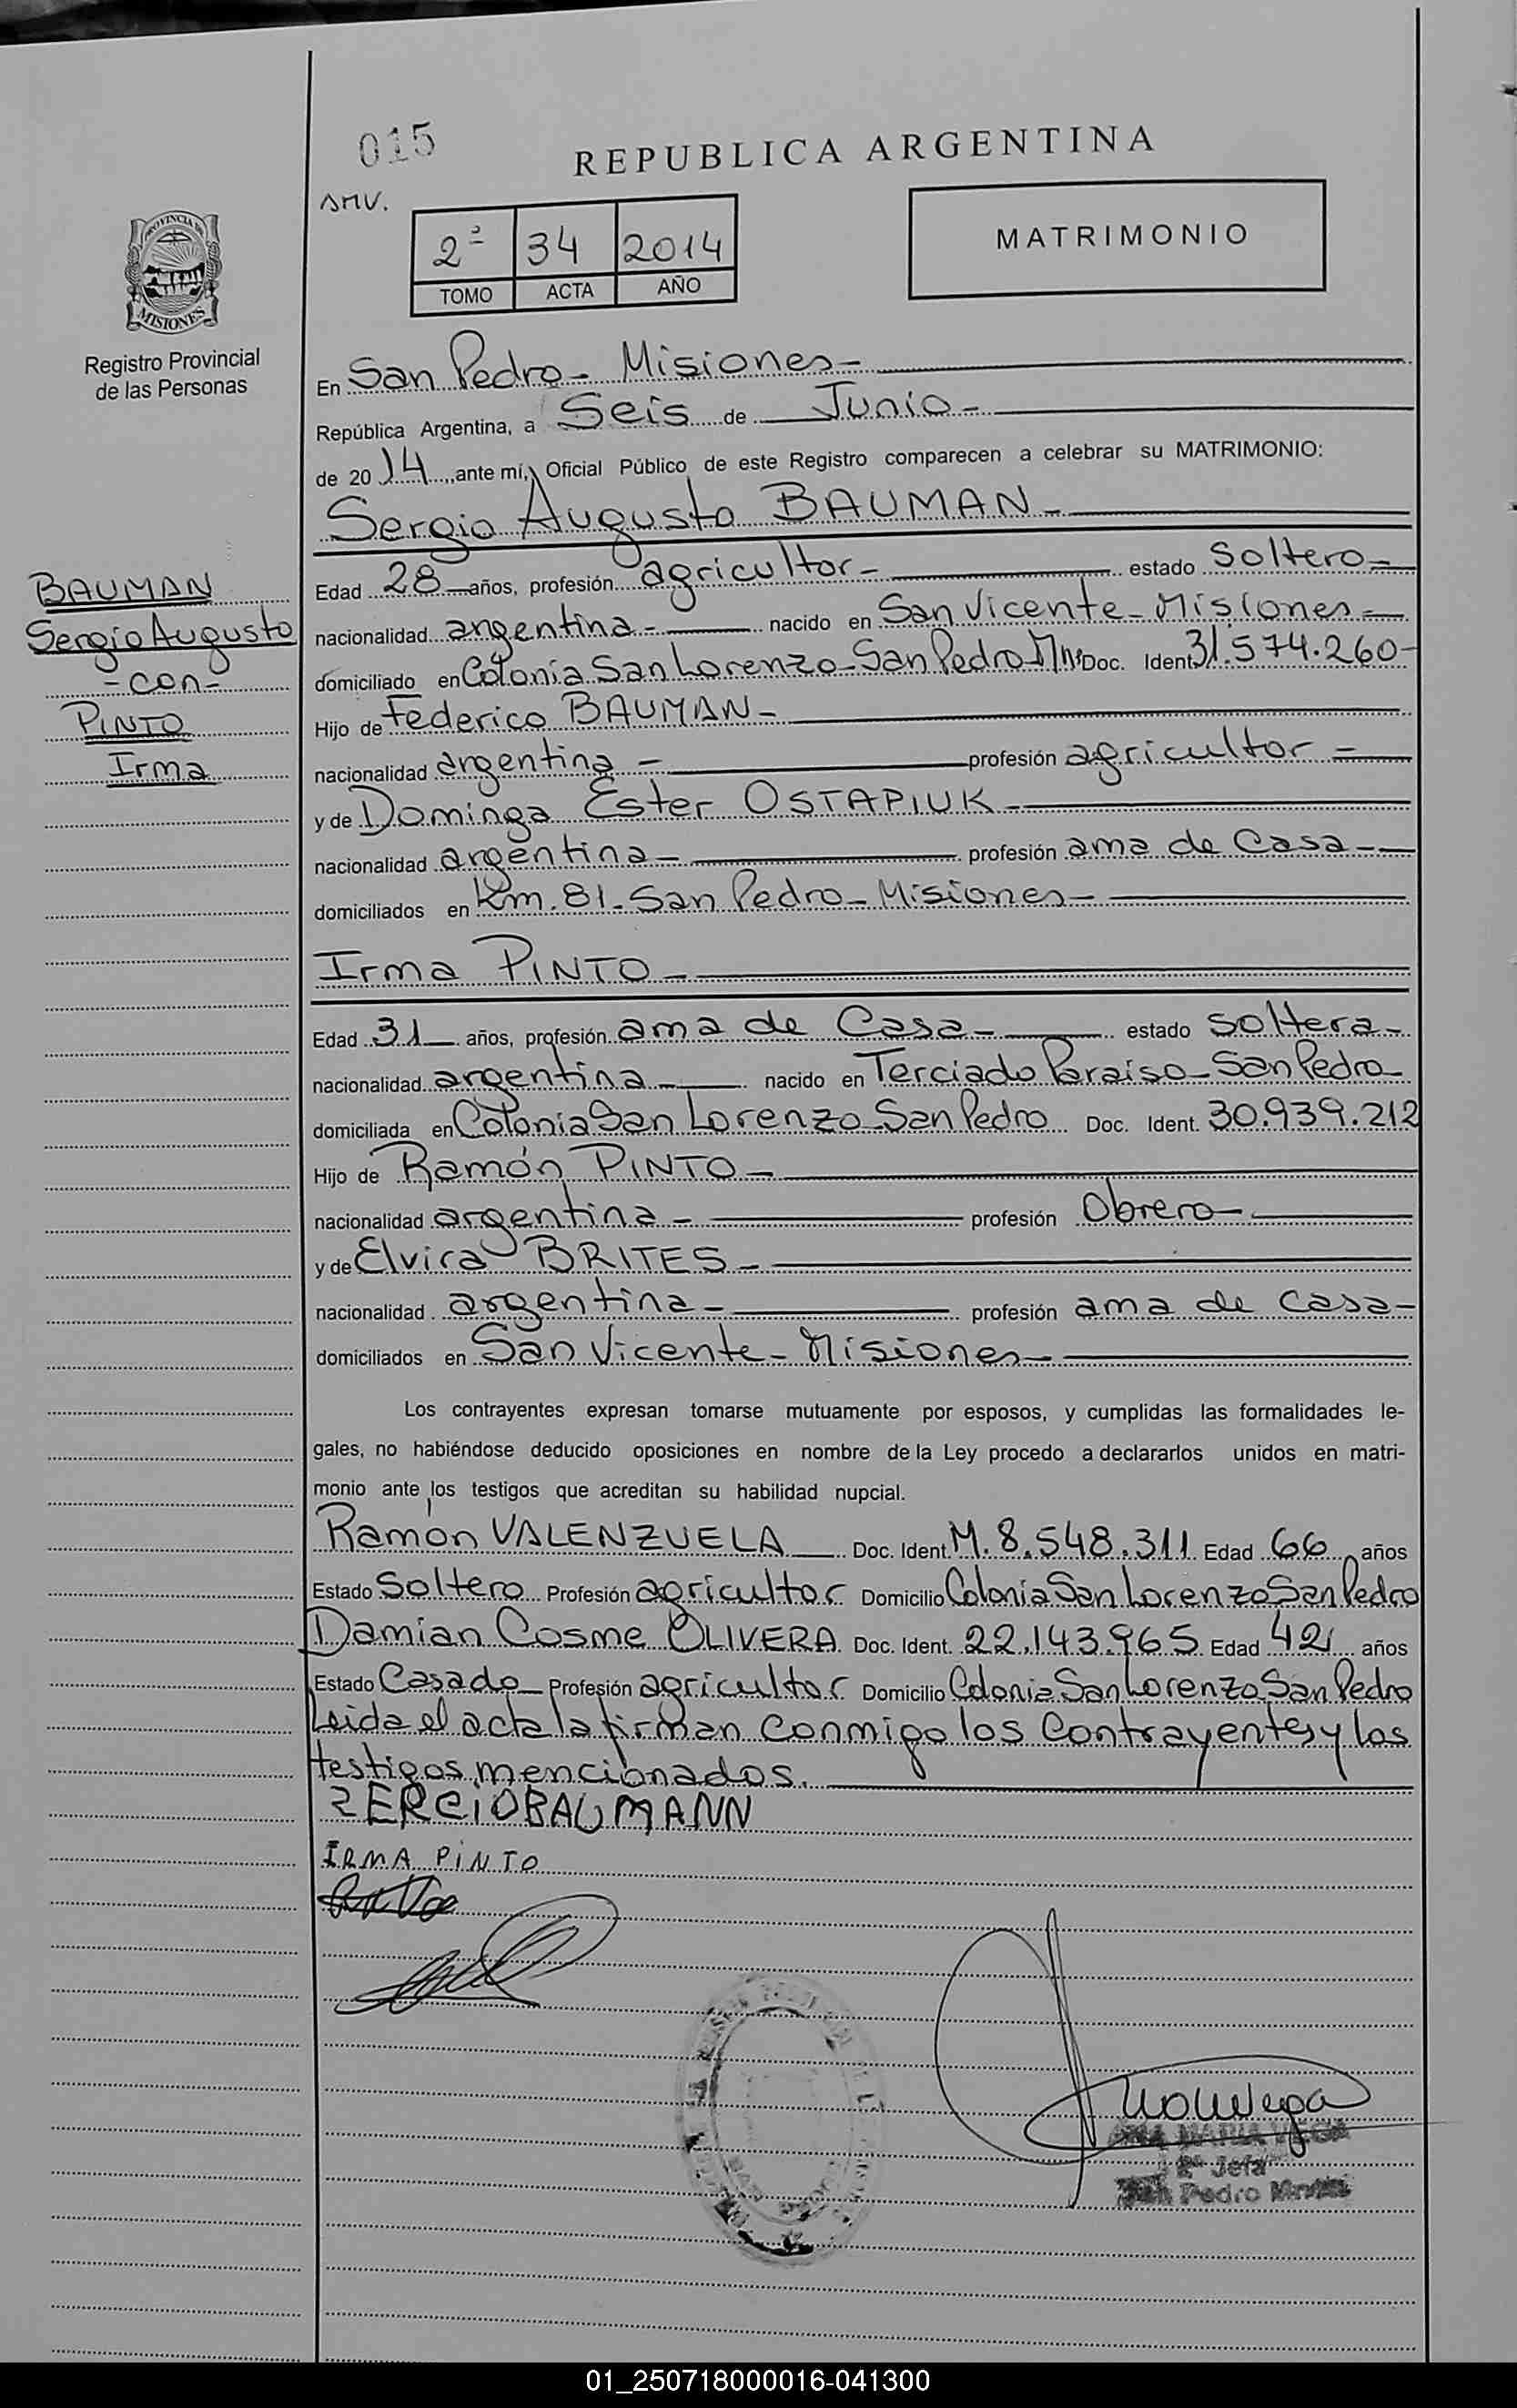 015
REPUBLICA ARGENTINA
AMV.
MATRIMONIO
2º 34 2014
TOMO ACTA AÑO
PROVINCIA DE
MISIONES
Registro Provincial
de las Personas
En San Pedro - Misiones -
República Argentina, a Seis de Junio -
de 20 14, ante mí, Oficial Público de este Registro comparecen a celebrar su MATRIMONIO:
Sergio Augusto BAUMAN -
BAUMAN
Sergio Augusto
- con -
PINTO
Irma
Edad 28 años, profesión agricultor - estado Soltero -
nacionalidad argentina - nacido en San Vicente - Misiones -
domiciliado en Colonia San Lorenzo - San Pedro Mnes Doc. Ident 31.574.260 -
Hijo de Federico BAUMAN -
nacionalidad argentina - profesión agricultor -
y de Dominga Ester OSTAPIUK -
nacionalidad argentina - profesión ama de Casa -
domiciliados en Km. 81 - San Pedro - Misiones -
Irma PINTO -
Edad 31 años, profesión ama de Casa - estado Soltera -
nacionalidad argentina - nacido en Terciado Paraíso - San Pedro -
domiciliada en Colonia San Lorenzo - San Pedro Doc. Ident. 30.939.212
Hijo de Ramón PINTO -
nacionalidad argentina - profesión Obrero -
y de Elvira BRITES -
nacionalidad argentina - profesión ama de Casa -
domiciliados en San Vicente - Misiones -
Los contrayentes expresan tomarse mutuamente por esposos, y cumplidas las formalidades le-
gales, no habiéndose deducido oposiciones en nombre de la Ley procedo a declararlos unidos en matri-
monio ante los testigos que acreditan su habilidad nupcial.
Ramón VALENZUELA Doc. Ident. M. 8.548.311 Edad 66 años
Estado Soltero Profesión agricultor Domicilio Colonia San Lorenzo San Pedro
Damián Cosme OLIVERA Doc. Ident. 22.143.965 Edad 42 años
Estado Casado Profesión agricultor Domicilio Colonia San Lorenzo San Pedro
Leida el acta la firman conmigo los Contrayentes y los
testigos mencionados.
ZERCIO BAUMANN
IRMA PINTO
ANA MARIA VEGA
2ª Jefa
San Pedro Mnes
01_250718000016-041300